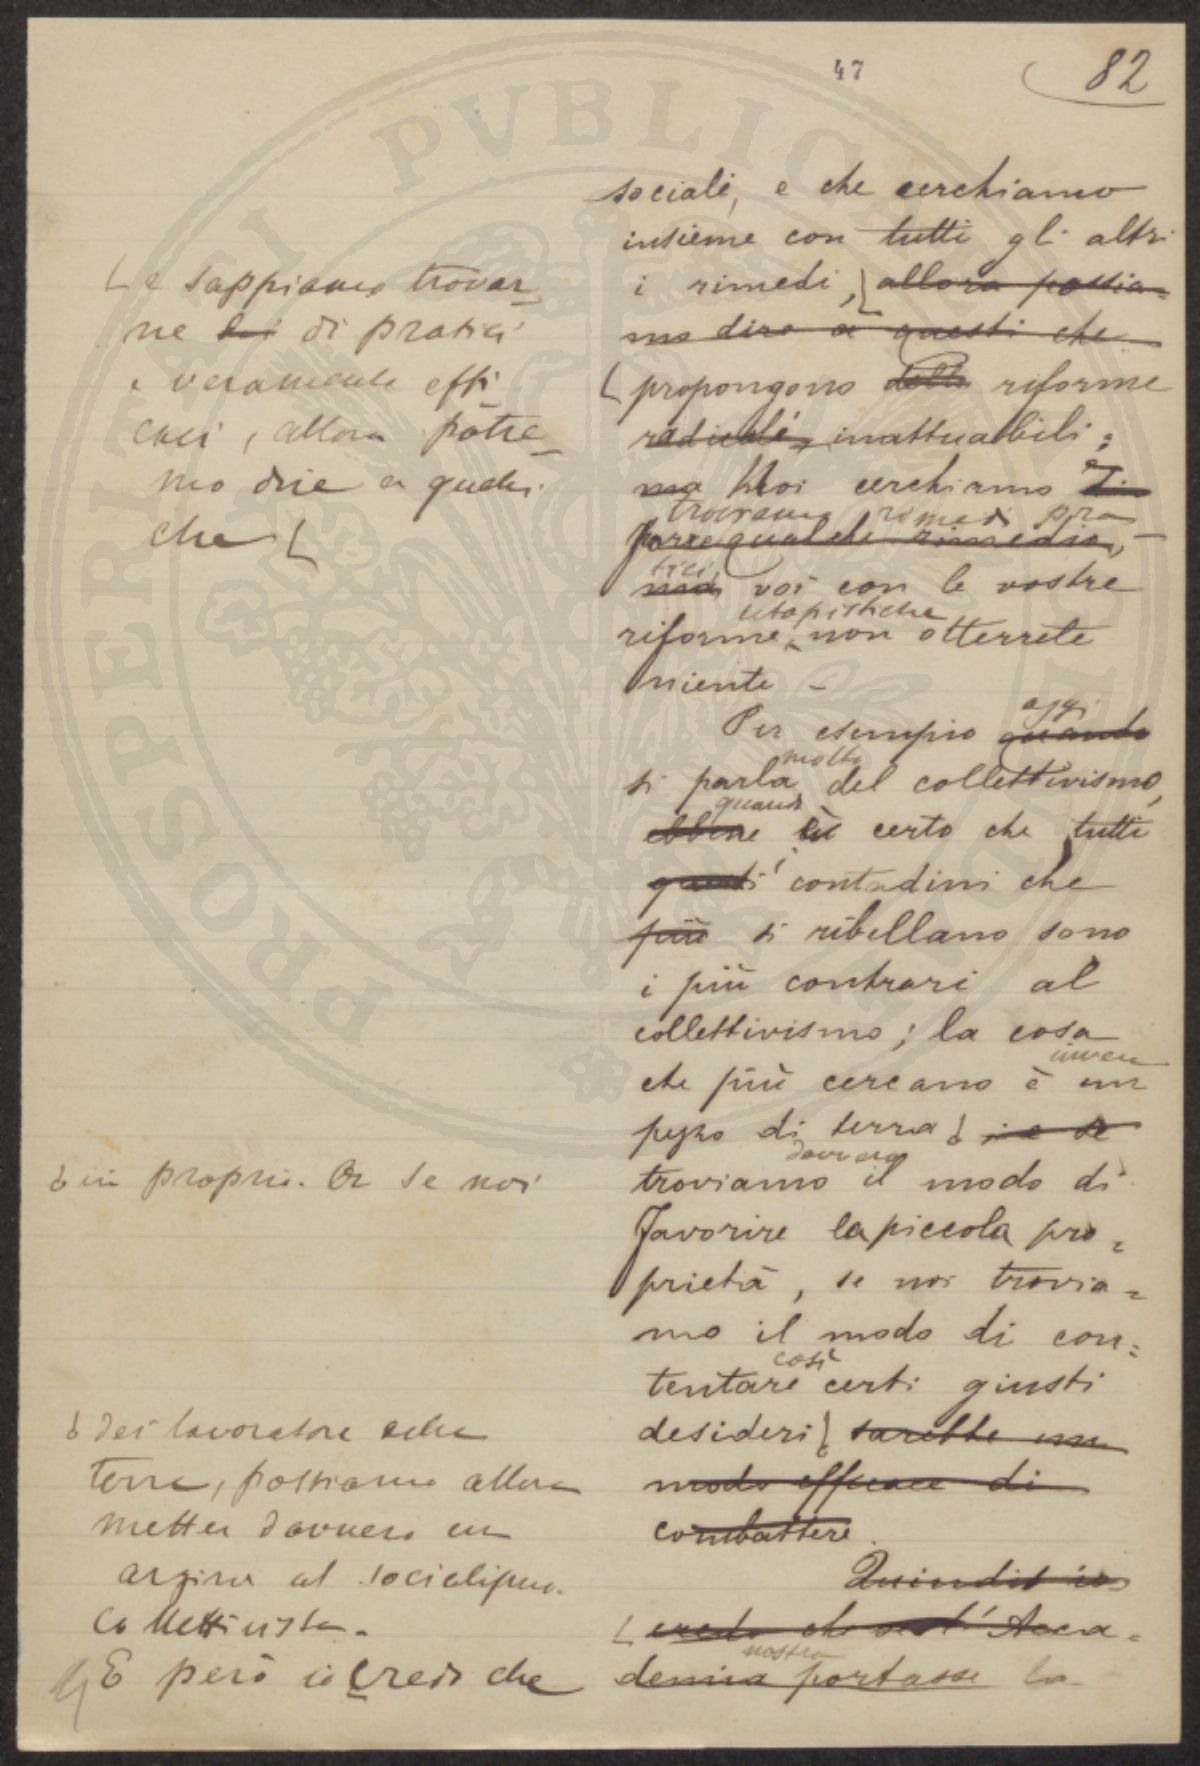 47
82
sociali, e che cerchiamo
insieme con tutti gli altri
i rimedi, allora possia=
mo dire a questi che
propongono delle riforme
radicali, inattuabili;
ma Noi cerchiamo
troviamo rimedi pra
forse qualche rimedio,
tici,
ma voi con le vostre
utopistiche
riforme, non otterrete
niente -
oggi
Per esempio quando
molto
si parla del collettivismo,
quando
ebbene è certo che tutti
questi i contadini che
più si ribellano sono
i più contrari al
collettivismo; la cosa
invece
che più cercano è un
pezzo di terra; e se
davvero
troviamo il modo di
favorire la piccola pro=
prietà, se noi trovia=
mo il modo di con=
così
tentare certi giusti
desideri sarebbe un
modo efficace di
combattere.
Quindi io
credo che se l'Acca=
nostra
demia portasse la
e sappiamo trovar
ne dei di pratici
e veramente effi
caci, allora potre=
mo dire a questi
che
in proprio. Or se noi
dei lavoratori della
terra, possiamo allora
metter davvero un
argine al socialismo
collettivista.
E però io credo che
PROSPERITATI PVBLICAE